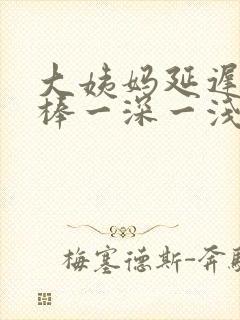 大姨妈延遲
棒一深一淺
梅塞德斯-奔馳